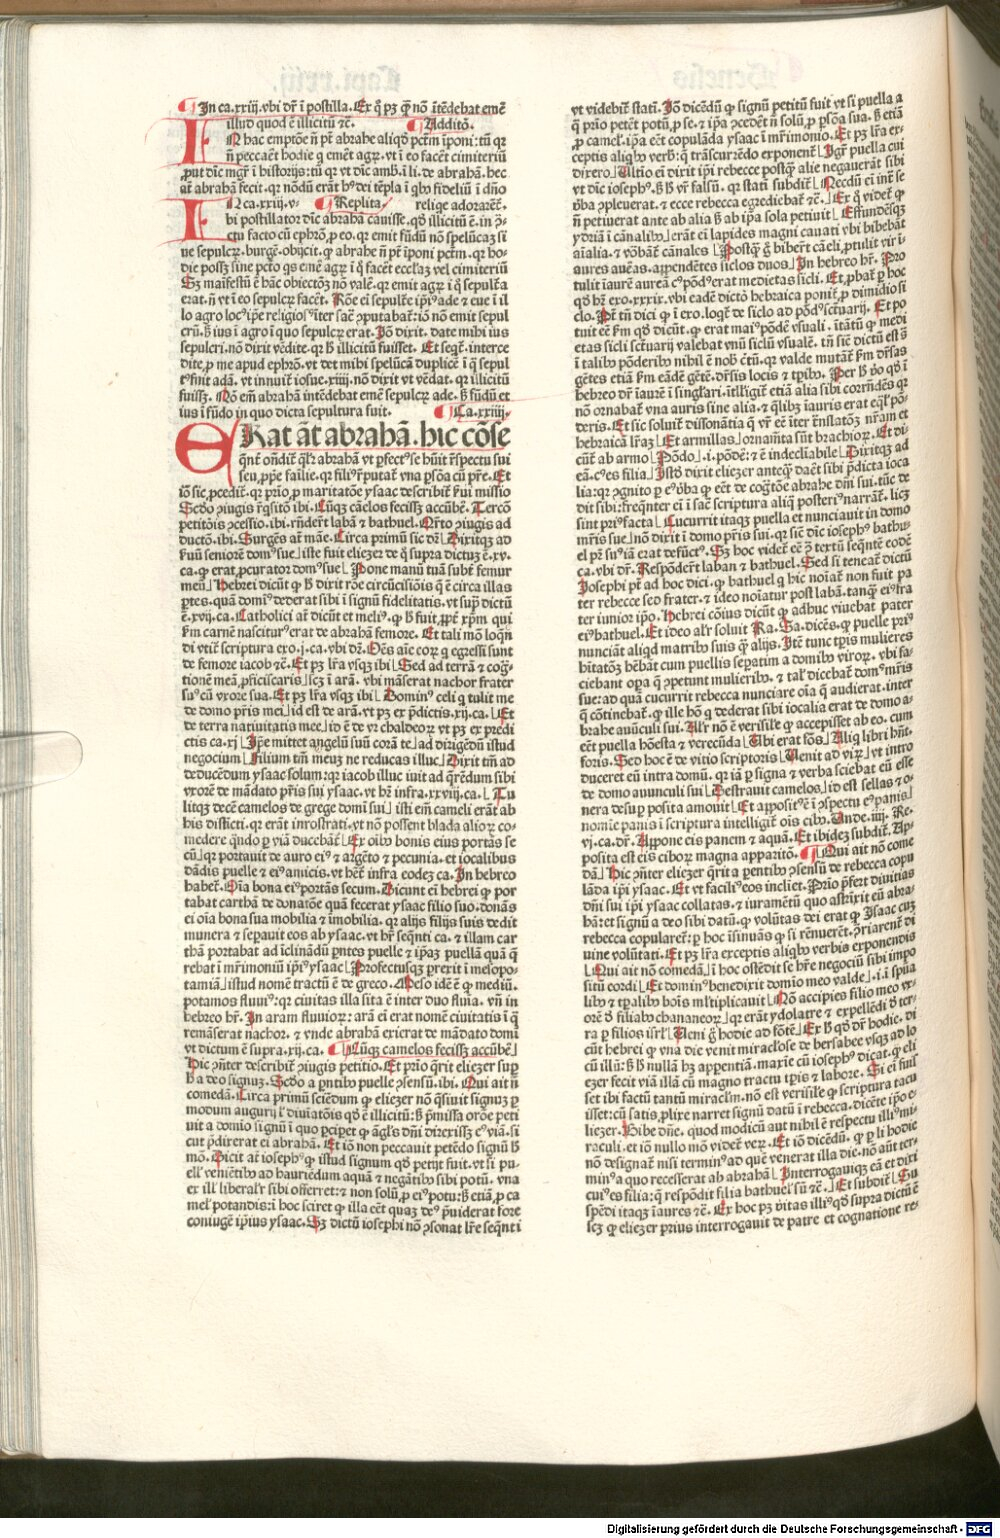 ¶ In ca. xxiij. vbi dr̄ ī postilla. Ex q̄ pꝫ qͥ nō ītēdebat emē
illud quod ē illicitū ꝛc̄. ¶ Additō.
IN hac emptōe ñ pt̄ abrahe aliqđ pctm̄ īponi: tū qꝛ
ñ peccaēt hodie q emēt agrꝫ. vt ī eo facēt cimiteriū
ꝓut dīc mgr̄ ī historijs: tū qꝛ vt dīc amb. ī li. de abrahā. hec
at̄ abrahā fecit. qꝛ nōdū erāt hꝰ dei tēpla ī qͥbꝰ fideliū ī dn̄o
IN ca. xxiij. v. ¶ Replica reliqe adorarēt̄.
bi postillator dīc abrahā cauisse. qđ illicitū ē. in ꝯ-
ctu facto cū ephrō. ꝑ eo. qꝛ emit fūdū nō spelūcaꝫ si
ue sepulcrꝫ. burgē. obijcit. qꝛ abrahe ñ pt̄ īponi pctm̄. qꝛ ho-
die possꝫ sine pctō qͥs emē agrꝫ ī q̄ facēt eccl'aꝫ vel cimiteriū
Sꝫ maifestū ē hāc obiectōꝫ nō valē. qꝛ emit agrꝫ ī q̄ sepulcra
erāt. ñ vt ī eo sepulcrꝫ facēt. Rōe ei sepulcre ipiꝰ ade ⁊ eue ī il
lo agro locꝰ ipe religiosꝰ īter sacͣ ꝯputabat̄: iō nō emit sepul
crū. ßꝫ ius ī agro ī quo sepulcrꝫ erat. Iō dixit. date mihi ius
sepulcri. nō dixit vēdite. qꝛ ß illicitū fuisset. Et seqt̄. interce
dite. ꝓ me apud ephrō. vt det mihi spelūcā duplicē ī q̄ sepul
tꝰ fuit adā. vt innuit̄ iosue. xiiij. nō dixit vt vēdat. qꝛ illicitū
fuissꝫ. Nō em̄ abrahā intēdebat emē sepulcrꝫ ade. ß fūdū et
ius ī fūdo in quo dicta sepultura fuit. ¶ Ca. xxiiij.
ERat āt abrahā. hic cōse
seu. ꝓpe failie. qꝛ filiꝰ r̄putat̄ vna ꝑsōa cū pr̄e. Et
iō sic ꝓcedit̄. qꝛ prio ꝑ maritatōe ysaac describit̄ ẜui missio
petitōis ꝯcessio. ibi. rn̄derūt labā ⁊ bathuel. Qrto ꝯiugis ad
ductō. ibi. Surgēs at̄ māe. Circa primū sic dr̄. Dixitqꝫ ad
ẜuū seniorē domꝰ sue iste fuit eliezer de q̄ supra dictuꝫ ē. xv.
ca. ꝙ erat ꝓcurator domꝰ sue. Pone manū tuā subt̄ femur
meū. Hebrei dicūt ꝙ ß dixit rōe circūcisiōis q̄ ē circa illas
ꝑtes. quā domiꝰ dederat sibi ī signū fidelitatis. vt supͣ dictū
ē. xvij. ca. Catholici at̄ dicūt et meliꝰ. ꝙ ß fuit. ꝓpt̄ xp̄m qui
ẜm carnē nasciturꝰ erat de abrahā femore. Et tali mō loqn̄
de femore iacob ⁊c̄. Et pꝫ lr̄a vsqꝫ ibi. Sed ad terrā ⁊ cog-
tionē meā ꝓficiscaris. sc̄ꝫ ī arā. vbi māserat nachor frater
suꝰ cū vxore sua. Et pꝫ lr̄a vsqꝫ ibi. Dominꝰ celi q̄ tulit me
de domo pr̄is mei. id est de arā. vt pꝫ ex p̄dictis. xij. ca. Et
de terra natiuitatis mee. id ē de vr chaldeoꝝ vt pꝫ ex predi
ctis ca. xj. Ipe mittet angelū suū corā te. ad dirigēdū istud
negocium. Filium tm̄ meuꝫ ne reducas illuc. Dixit tm̄ ad
deducēdum ysaac solum: qꝛ iacob illuc iuit ad qrēdum sibi
vxorē de mādato pr̄is sui ysaac. vt hr̄ infra. xxviij. ca. Tu
litqꝫ decē camelos de grege domi sui. isti em̄ cameli erāt ab
his distīcti. qꝛ erāt inrostrati. vt nō possent blada alioꝝ co-
medere qn̄do ꝑ viā ducebāt̄. Ex oībꝰ bonis eius portās se
cū. qꝛ portauit de auro eiꝰ ⁊ argēto ⁊ pecunia. et iocalibus
dādis puelle ⁊ eiꝰ amicis. vt hr̄ infra eodeꝫ ca. In hebreo
habet̄. Oīa bona eiꝰ portās secum. Dicunt ei hebrei ꝙ por
tabat carthā de donatōe quā fecerat ysaac filio suo. donās
ei oīa bona sua mobilia ⁊ īmobilia. qꝛ alijs filijs suis dedit
munera ⁊ sepauit eos ab ysaac. vt hr̄ seqn̄ti ca. ⁊ illam car
thā portabat ad īclinādū ꝑntes puelle ⁊ ipaꝫ puellā quā q̄
rebat ī mr̄imoniū ipiꝰ ysaac. Profectusqꝫ ꝑrexit ī mesopo-
tamiā. istud nomē tractū ē de greco. Meso idē ē ꝙ mediū.
potamos fluuiꝰ: qꝛ ciuitas illa sita ē inter duo flūia. vn̄ in
hebreo hr̄. In aram fluuioꝝ: arā ei erat nomē ciuitatis ī q̄
remāserat nachor. ⁊ vnde abrahā exierat de mādato domi
vt dictum ē supra. xij. ca. ¶ Cūqꝫ camelos fecissꝫ accūbē
hic ꝯn̄ter describit̄ ꝯiugis petitio. Et prio qrit eliezer sup
ß a deo signuꝫ. Scd̄o a ꝑntibꝰ puelle ꝯsensū. ibi. Qui ait ñ
comedā. Circa primū sciēdum ꝙ eliezer nō qsiuit signuꝫ ꝑ
modum augurij l' diuīatōis qđ ē illicitū: ß p̄missa orōe peti
uit a domio signū ī quo ꝑcipet ꝙ āgl's dn̄i direxissꝫ eꝰ viā. si
cut p̄dixerat ei abrahā. Et iō non peccauit petēdo signū ß
mō. Dicit at̄ iosephꝰ ꝙ istud signum qđ petijt fuit. vt si pu-
ell' veniētibꝰ ad hauriēdum aquā ⁊ negātibꝰ sibi potū. vna
ex ill' liberal'r sibi offerret: ⁊ non solū. ꝓ eiꝰ potu: ß etiā. ꝓ ca
mel' potandis: ī hoc sciret ꝙ illa eēt quaꝫ deꝰ p̄uiderat fore
coniugē ipius ysaac. Sꝫ dictū iosephi nō ꝯsonat lr̄e seqn̄ti
vt videbit̄ statī. Iō dicēdū ꝙ signū petitū fuit vt si puella a
q̄ prio petēt potū. ꝓ se. ⁊ ipa ꝯcedēt ñ solū. ꝓ ꝑsōa sua. ß etiā
ꝓ camel'. ipa eēt copulāda ysaac ī mr̄imonio. Et pꝫ lr̄a ex-
ceptis aliqͥbꝰ verb': q̄ trāscurrēdo exponent̄. Igr̄ puella cui
dixero. Ultio ei dixit ipi rebecce postqͣ alie negauerāt sibi
vt dīc iosephꝰ. ß ß vr̄ falsū. qꝛ statī subdit̄. Necdū ei īntͣ se
v̄ba ꝯpleuerat. ⁊ ecce rebecca egrediebat̄ ⁊c̄. Ex q̄ videt̄ ꝙ
ñ petiuerat ante ab alia ß ab ipa sola petiuit. Effundēsqꝫ
ydriā ī cānalibꝰ. erāt ei lapides magni cauati vbi bibebāt
aialia. ⁊ vōbāt̄ cānales. Postqͣ g̈ biberūt cāeli. ꝓtulit vir ī
aures aureas. appendētes siclos duos. In hebreo hr̄. Pro
tulit iaurē aureā cꝰ pōdꝰ erat medietas sicli. Et ꝓbat̄ ꝑ hoc
qđ hr̄ exo. xxxix. vbi eadē dictō hebraica ponit̄. ꝓ dimidio si
clo. Pt̄ tn̄ dici ꝙ ī exo. loqt̄ de siclo ad pōdꝰ sc̄tuarij. Et po
tuit eē ẜm qđ dicūt. ꝙ erat maiꝰ pōdē vsuali. ītātū ꝙ medi
etas sicli sc̄tuarij valebat vnū siclū vsualē. tn̄ sic̄ dictū est s̄
ī talibꝰ pōderibꝰ nihil ē nob' c̄tū. qꝛ valde mutāt̄ ẜm dr̄sas
gētes etiā ẜm eādē gētē. dr̄sis locis ⁊ tp̄ibꝰ. Per ß v̄o qđ ī
hebreo dr̄ iaurē ī singl'ari. ītelligit̄ etiā alia sibi corrn̄dēs qꝛ
nō ornabat̄ vna auris sine alia. ⁊ qlibꝫ iauris erat eql' pō-
deris. Et sic soluit̄ dissonātia q̄ vr̄ eē īter trāslatōꝫ nr̄am et
hebraicā lr̄aꝫ. Et armillas. ornam̄ta sūt brachioꝝ. Et di
cūt̄ ab armo. Pōdo. i. pōdē: ⁊ ē indeclīabile. Dixitqꝫ ad
eā. cꝰ es filia. Istđ dixit eliezer anteqͣ daēt sibi p̄dicta ioca
lia: qꝛ ꝯgnito ꝑ eꝰ v̄ba ꝙ eēt de cog̈tōe abrahe dn̄i sui. tūc de
dit sibi: freqn̄ter ei ī sacͣ scriptura aliqͣ posteriꝰ narrāt̄. licꝫ
sint priꝰ facta. Cucurrit itaqꝫ puella et nunciauit in domo
mr̄is sue. nō dixit ī domo pr̄is sui. qꝛ sic̄ dīc iosephꝰ bathu
el pr̄ suꝰ iā erat defūctꝰ. Sꝫ hoc videt̄ eē ꝯ̄ textū seqn̄te eodē
ca. vbi dr̄. Respōderūt laban ⁊ bathuel. Sed si teneat̄ dictū
Iosephi pt̄ ad hoc dici. ꝙ bathuel q̄ hic noīat̄ non fuit pa
ter rebecce sed frater. ⁊ ideo noīatur post labā. tanqͣ eiꝰ fra
ter iunior ipo. Hebrei cōius dicūt ꝙ adhuc viuebat pater
eiꝰ bathuel. Et ideo al'r soluit Ra. Sa. dicēs. ꝙ puelle priꝰ
nunciāt aliqđ matribꝰ suis qͣ alijs. Itē tunc tp̄is mulieres
hītatōꝫ hēbāt cum puellis seꝑatim a domibꝰ viroꝝ. vbi fa-
ciebant opa q̄ ꝯpetunt mulieribꝰ. ⁊ tal' dicebat̄ domꝰ mr̄is
sue: ad quā cucurrit rebecca nunciare oīa q̄ audierat. inter
q̄ cōtinebat̄. ꝙ ille hō q̄ dederat sibi iocalia erat de domo a-
brahe auūculi sui. Al'r nō ē verisil'e ꝙ accepisset ab eo. cum
eēt puella hōesta ⁊ verecūda. Ubi erat fōs. Aliq̄ libri hn̄t.
foris. Sed hoc ē de vitio scriptoris. Uenit ad virꝫ. vt intro
duceret eū intra domū. qꝛ iā ꝑ signa ⁊ verba sciebat eū esse
de domo auunculi sui. Destrauit camelos. id est sellas ⁊ o-
nera desuꝑ posita amouit. Et apposit̄ ē ī ꝯspectu eꝰ panis.
nomīe panis ī scriptura intelligit̄ oīs cibꝰ. Unde. iiij. Re.
vj. ca. dr̄. Appone eis panem ⁊ aquā. Et ibidez subdit̄. Ap-
posita est eis ciboꝝ magna apparitō. ¶ Qui ait nō come
dā. Hic ꝯn̄ter eliezer qrit a ꝑentibꝰ ꝯsensū de rebecca copu
lāda ipi ysaac. Et vt faciliꝰ eos incliet. Prio p̄fert diuitias
dn̄i sui ipi ysaac collatas. ⁊ iuramētū quo astrīxit eū abra-
hā: et signū a deo sibi datū. ꝙ volūtas dei erat ꝙ Isaac cuꝫ
rebecca copularet̄: ꝑ hoc īsinuās ꝙ si rēnuerēt. ꝯ̄riarent̄ di
uine volūtati. Et pꝫ lr̄a exceptis aliqͥbꝰ verbis exponendis
Qui ait nō comedā. ī hoc ostēdit se hr̄e negociū sibi impo
sitū cordi. Et dominꝰ benedixit domio meo valde. i. ī spūa
libꝰ ⁊ tp̄alibꝰ bois ml'tiplicauit. Nō accipies filio meo vx-
orē đ filiabꝰ chananeoꝝ. qꝛ erāt ydolatre ⁊ expellēdi đ ter-
ra ꝑ filios isrl'. Ueni g̈ hodie ad fōtē. Ex ß qđ dr̄ hodie. di
cūt hebrei ꝙ vna die venit miracl'ose de bersabee vsqꝫ ad lo
cū illū: ß ß nullā hꝫ apparentiā. maxie cū iosephꝰ dicat. ꝙ eli
ezer fecit viā illā cū magno tractu tp̄is ⁊ labore. Si ei fuis
set ibi factū tantū miracl'm. nō est verisil'e ꝙ scriptura tacu
isset: cū satis. plixe narret signū datū ī rebecca. dicēte ipo e-
liezer. Bibe dn̄e. quod modicū aut nihil ē respectu illiꝰ mi-
raculi. et iō nullo mō videt̄ veꝝ. Et iō dicēdū. ꝙ ꝑ li hodie
nō designat̄ nisi terminꝰ ad quē venerat illa die. nō aūt ter-
minꝰ a quo recesserat ab abrahā. Interrogauiqꝫ eā et dixi
cuiꝰ es filia: q̄ respōdit filia bathuel' sū ⁊c̄. Et subdit̄. Su
spēdi itaqꝫ īaures ⁊c̄. Ex hoc pꝫ vitas illiꝰ qđ supra dictū ē
scꝫ ꝙ eliezer prius interrogauit de patre et cognatione re-
Digitalisierung gefördert durch die Deutsche Forschungsgemeinschaft - DFG